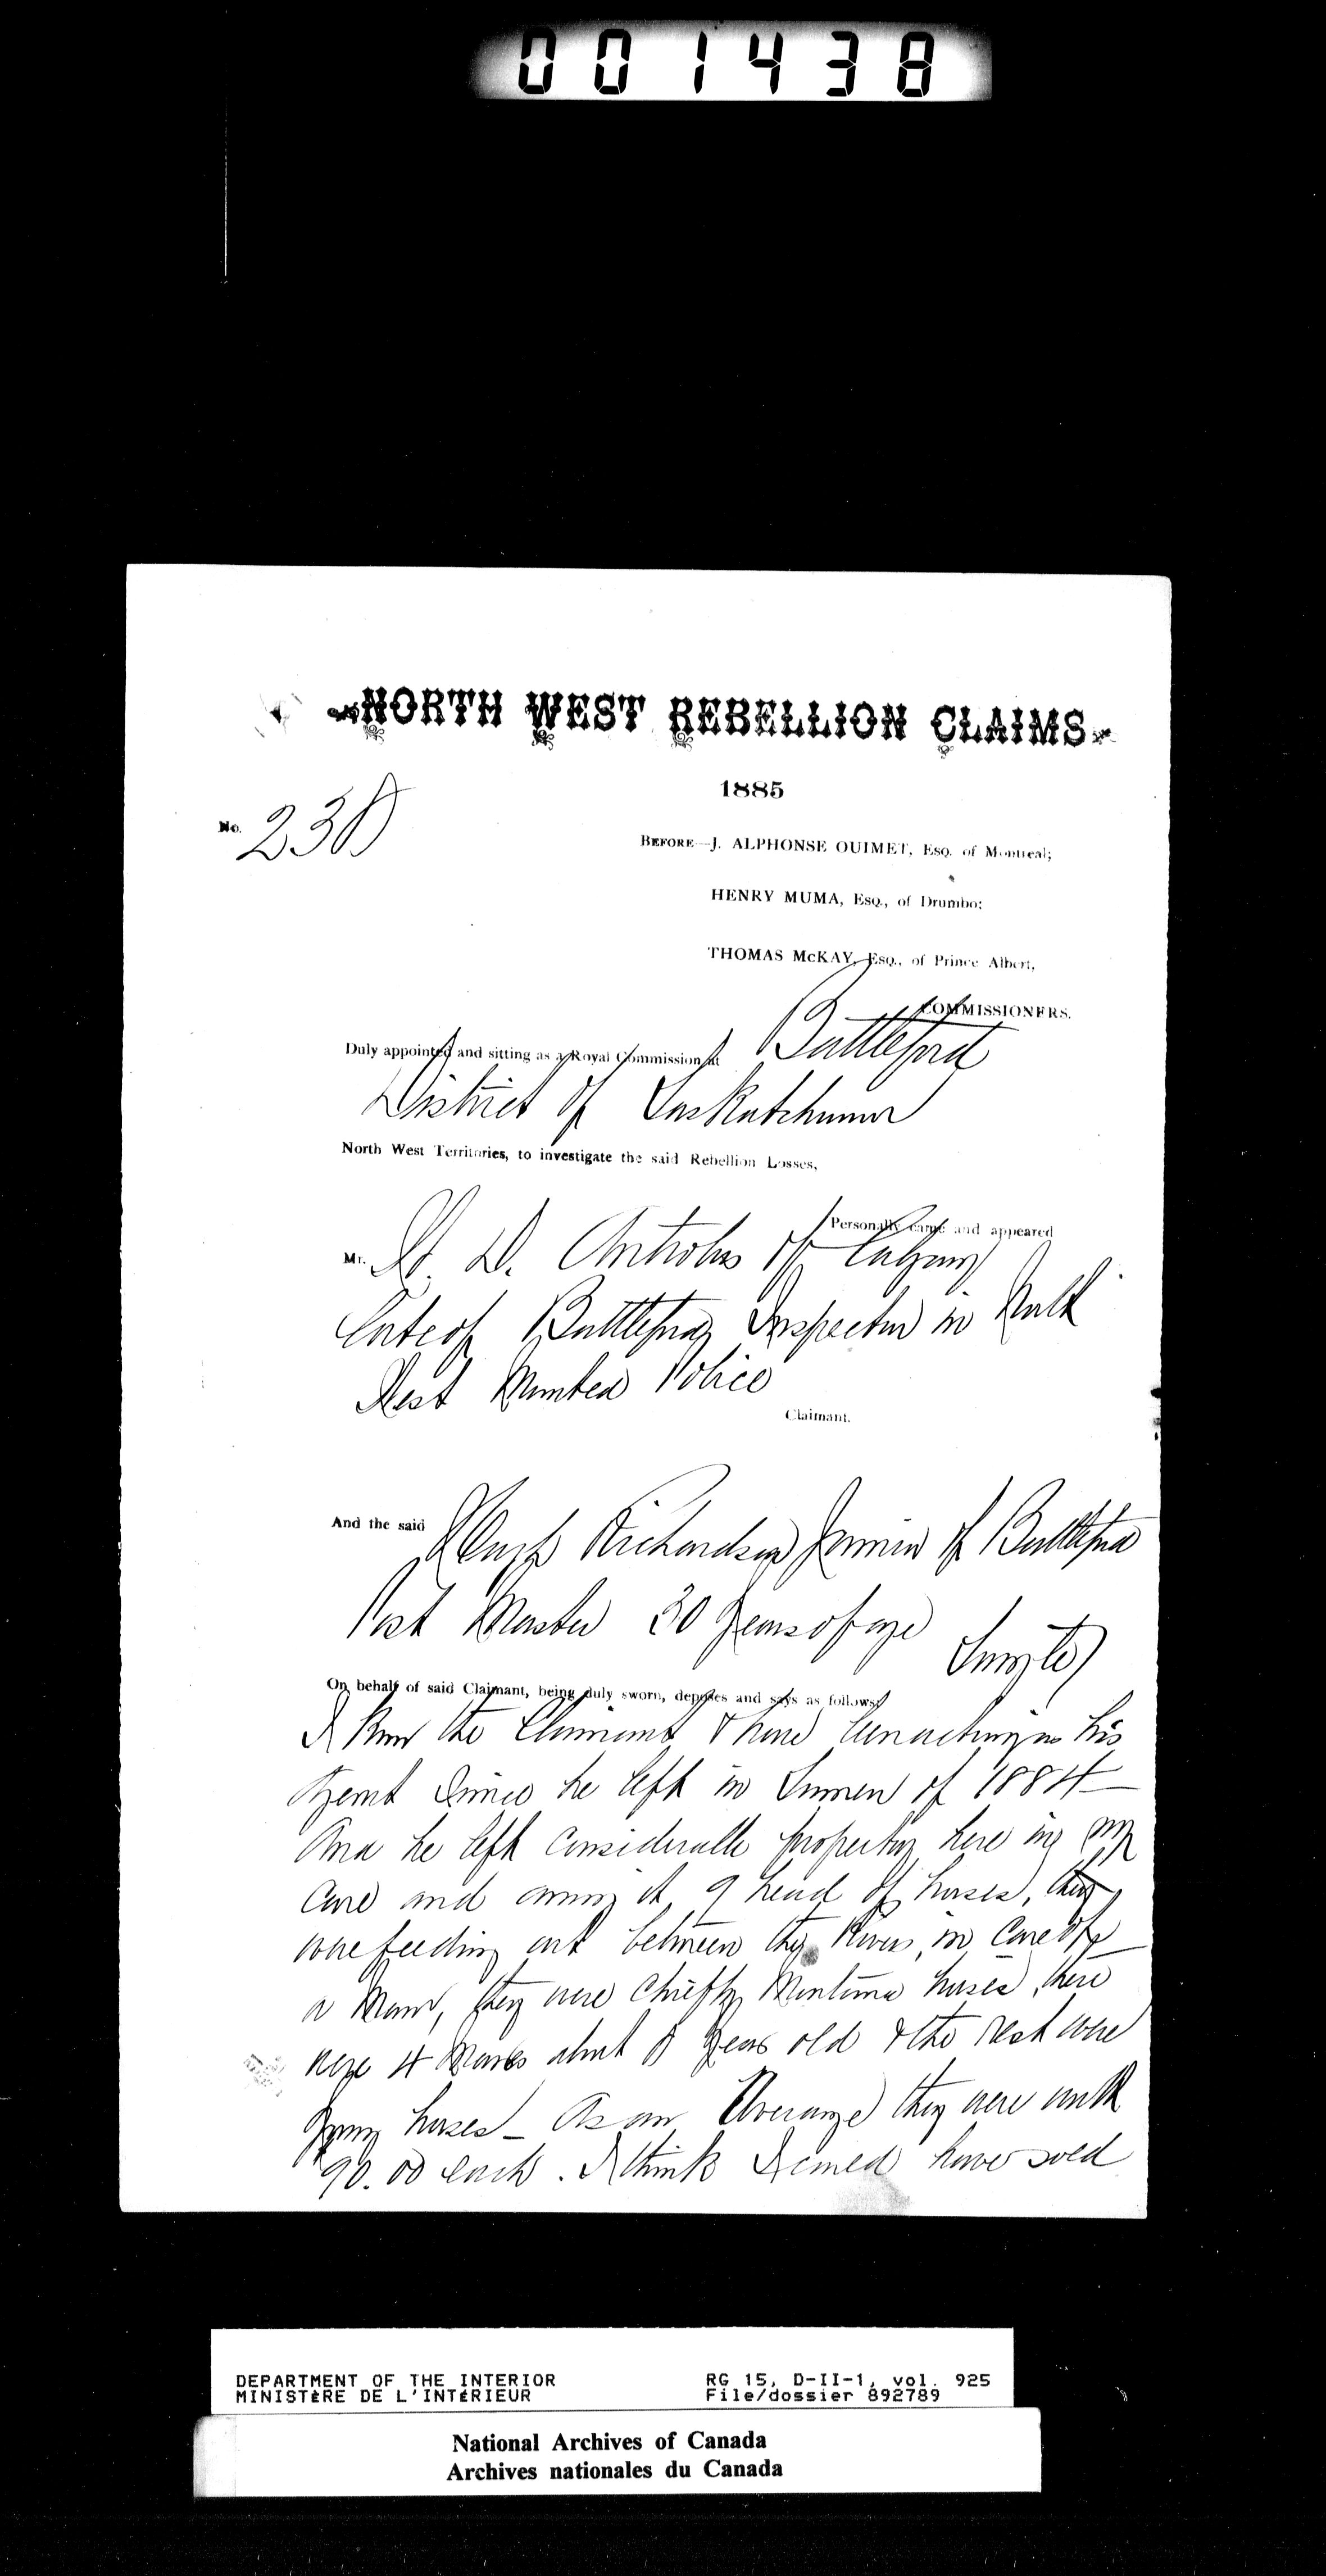 001438
NORTH WEST REBELLION CLAIMS
1885
No. 230
BEFORE—J. ALPHONSE OUIMET, Esq. of Montreal;
HENRY MUMA, Esq., of Drumbo;
THOMAS McKAY, Esq., of Prince Albert,
COMMISSIONERS.
Duly appointed and sitting as a Royal Commission at Battleford
District of Saskatchewan
North West Territories, to investigate the said Rebellion Losses,
Personally came and appeared
Mr. W. D. Antrobus of Calgary
Late of Battleford, Inspector in North
West Mounted Police
Claimant.
And the said Richardson Junior of Battleford
Post Master 30 Years of age
On behalf of said Claimant, being duly sworn, deposes and says as follows:
I know the Claimant & have been acting as his
Agent since he left in Summer of 1884
And he left considerable property here in my
care and among it, 9 head of horses, they
were feeding out between the Rivers, in care of
a Man, they were chiefly Montana horses, there
were 4 Mares about 8 Years old & the rest were
young horses – As an Average they were worth
90.00 each. I think I could have sold
DEPARTMENT OF THE INTERIOR
MINISTÈRE DE L'INTÉRIEUR
RG 15, D-II-1, vol. 925
File/dossier 892789
National Archives of Canada
Archives nationales du Canada